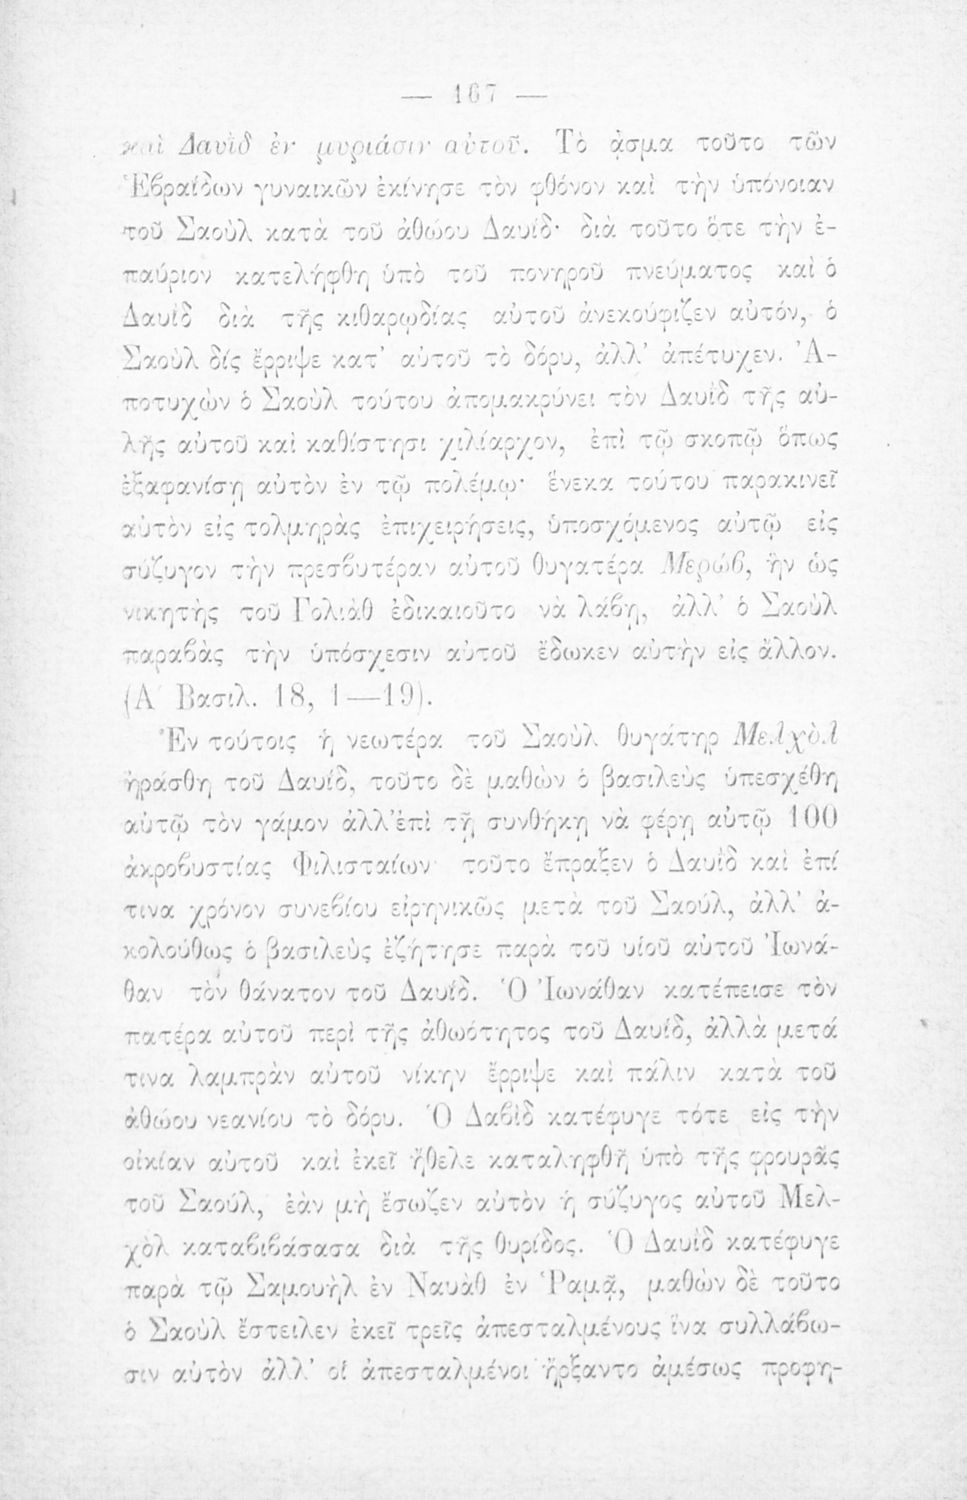 — 167 —
καὶ Δαυὶδ ἐν μυριάσιν αὐτοῦ. Τὸ ᾆσμα τοῦτο τῶν
Ἑβραΐδων γυναικῶν ἐκίνησε τὸν φθόνον καὶ τὴν ὑπόνοιαν
τοῦ Σαοὺλ κατὰ τοῦ ἀθώου Δαυΐδ· διὰ τοῦτο ὅτε τὴν ἐ-
παύριον κατελήφθη ὑπὸ τοῦ πονηροῦ πνεύματος καὶ ὁ
Δαυῒδ διὰ τῆς κιθαρῳδίας αὐτοῦ ἀνεκούφιζεν αὐτόν, ὁ
Σαοὺλ δίς ἔρριψε κατ' αὐτοῦ τὸ δόρυ, ἀλλ' ἀπέτυχεν. Ἀ-
ποτυχὼν ὁ Σαοὺλ τούτου ἀπομακρύνει τὸν Δαυῒδ τῆς αὐ-
λῆς αὐτοῦ καὶ καθίστησι χιλίαρχον, ἐπὶ τῷ σκοπῷ ὅπως
ἐξαφανίσῃ αὐτὸν ἐν τῷ πολέμῳ· ἕνεκα τούτου παρακινεῖ
αὐτὸν εἰς τολμηρὰς ἐπιχειρήσεις, ὑποσχόμενος αὐτῷ εἰς
σύζυγον τὴν πρεσβυτέραν αὐτοῦ θυγατέρα Μερώβ, ἣν ὡς
νικητὴς τοῦ Γολιὰθ ἐδικαιοῦτο νὰ λάβῃ, ἀλλ' ὁ Σαοὺλ
παραβὰς τὴν ὑπόσχεσιν αὐτοῦ ἔδωκεν αὐτὴν εἰς ἄλλον.
(Α' Βασιλ. 18, 1—19).
Ἐν τούτοις ἡ νεωτέρα τοῦ Σαοὺλ θυγάτηρ Μελχὸλ
ἠράσθη τοῦ Δαυΐδ, τοῦτο δὲ μαθὼν ὁ βασιλεὺς ὑπεσχέθη
αὐτῷ τὸν γάμον ἀλλ'ἐπὶ τῇ συνθήκῃ νὰ φέρῃ αὐτῷ 100
ἀκροβυστίας Φιλισταίων· τοῦτο ἔπραξεν ὁ Δαυῒδ καὶ ἐπί
τινα χρόνον συνεβίου εἰρηνικῶς μετὰ τοῦ Σαούλ, ἀλλ' ἀ-
κολούθως ὁ βασιλεὺς ἐζήτησε παρὰ τοῦ υἱοῦ αὐτοῦ Ἰωνά-
θαν τὸν θάνατον τοῦ Δαυΐδ. Ὁ Ἰωνάθαν κατέπεισε τὸν
πατέρα αὐτοῦ περὶ τῆς ἀθωότητος τοῦ Δαυΐδ, ἀλλὰ μετά
τινα λαμπρὰν αὐτοῦ νίκην ἔρριψε καὶ πάλιν κατὰ τοῦ
ἀθώου νεανίου τὸ δόρυ. Ὁ Δαβὶδ κατέφυγε τότε εἰς τὴν
οἰκίαν αὐτοῦ καὶ ἐκεῖ ἤθελε καταληφθῆ ὑπὸ τῆς φρουρᾶς
τοῦ Σαούλ, ἐὰν μὴ ἔσωζεν αὐτὸν ἡ σύζυγος αὐτοῦ Μελ-
χὸλ καταβιβάσασα διὰ τῆς θυρίδος. Ὁ Δαυῒδ κατέφυγε
παρὰ τῷ Σαμουὴλ ἐν Ναυὰθ ἐν Ῥαμᾷ, μαθὼν δὲ τοῦτο
ὁ Σαοὺλ ἔστειλεν ἐκεῖ τρεῖς ἀπεσταλμένους ἵνα συλλάβω-
σιν αὐτὸν ἀλλ' οἱ ἀπεσταλμένοι ἤρξαντο ἀμέσως προφη-